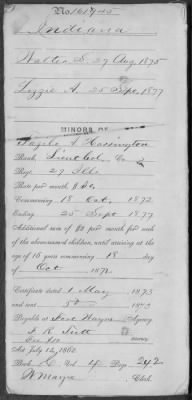 No. 161745
Indiana
Walter S. 27 Aug. 1875
Lizzie A. 25 Sept. 1877
MINORS OF
A Harrington
Rank, Lieut Col, Co.
Reg. 27 Ills
Rate per month $
Commencing 18 Oct, 1872
Ending 25 Sept 1877
Additional sum of $2 per month for each
of the abovenamed children, until arriving at the
age of 16 years commencing 18 day
of Oct 1872
Certificate dated 1 May 1873
and sent
Payable at Fort Wayne Agency
Attorney
Act July 14, 1862.
Book Vol. Page 242
Clerk.